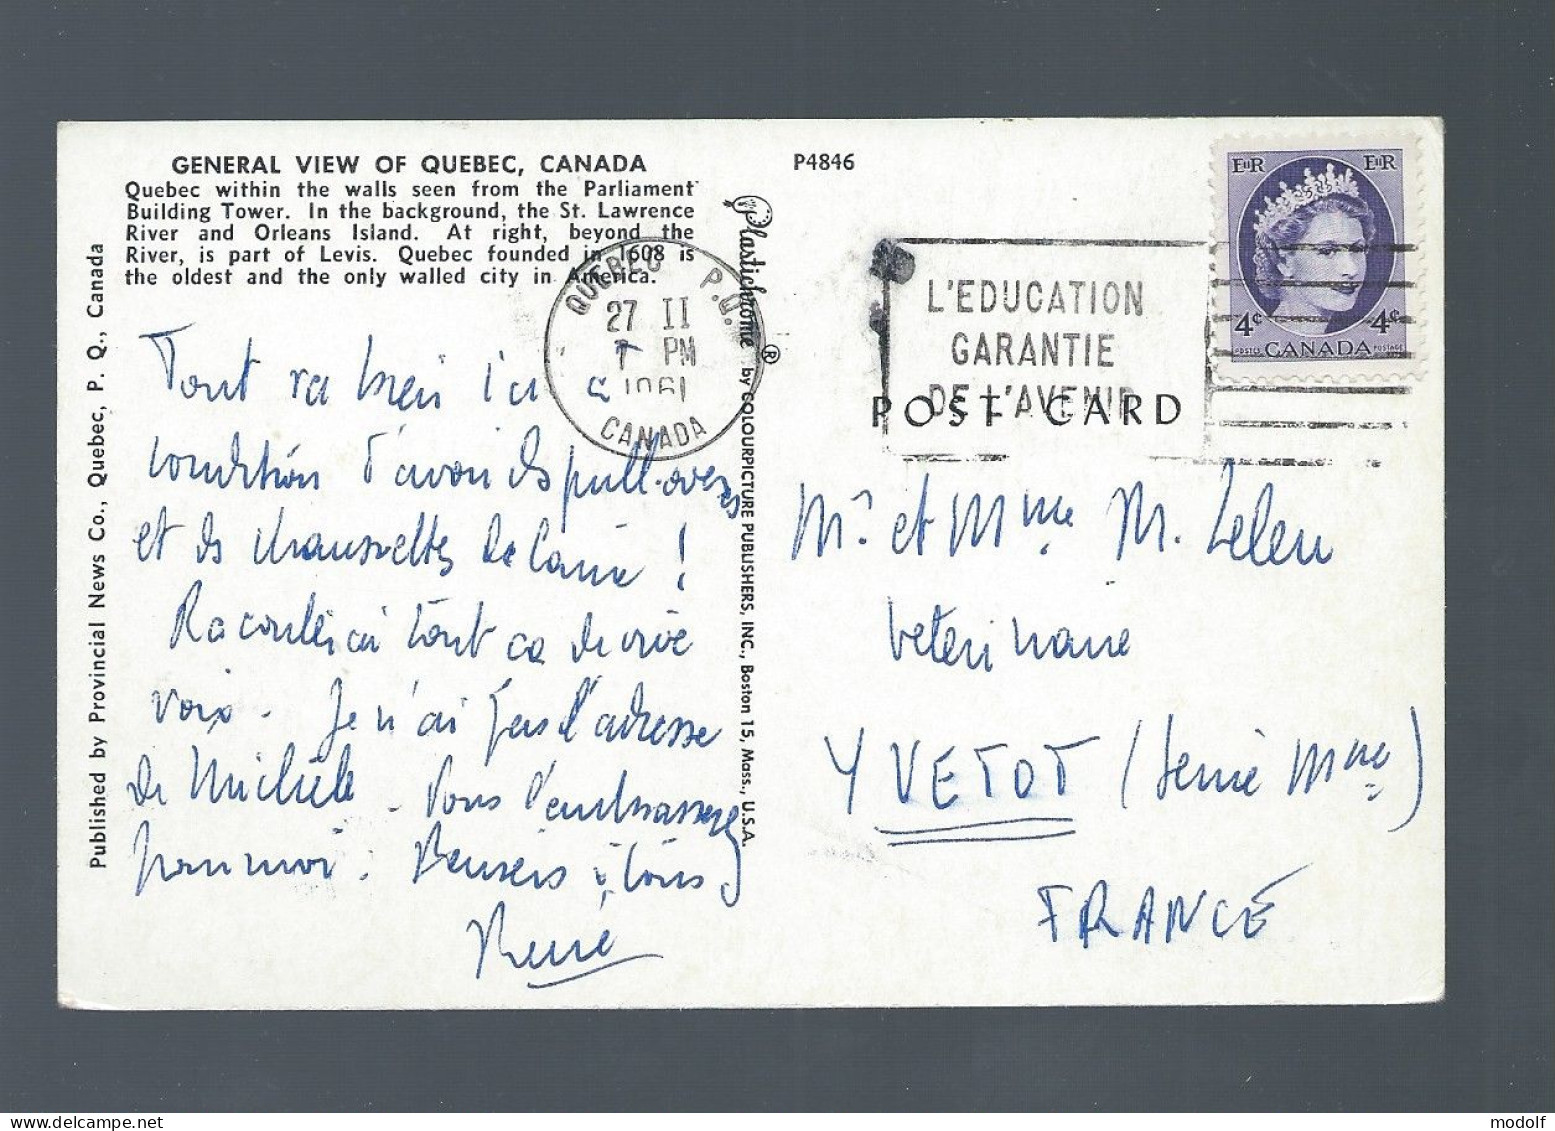 GENERAL VIEW OF QUEBEC, CANADA
Quebec within the walls seen from the Parliament
Building Tower. In the background, the St. Lawrence
River and Orleans Island. At right, beyond the
River, is part of Levis. Quebec founded in 1608 is
the oldest and the only walled city in America.
Published by Provincial News Co., Quebec, P. Q., Canada
Tout va bien ici à
condition d'avoir des pull-overs
et des chaussettes de laine !
Raconterai tout ça de vive
voix. Je n'ai pas l'adresse
de Michèle. Vous l'embrasserez
pour moi. Pensers à tous
René
QUEBEC P.Q.
27 II
PM
1961
CANADA
Plastichrome ® by COLOURPICTURE PUBLISHERS, INC., Boston 15, Mass., U.S.A.
P4846
L'EDUCATION
GARANTIE
DE L'AVENIR
EIIR EIIR
4¢ 4¢
POSTES CANADA POSTAGE
POST CARD
Mr et Mme M. Leleu
Veterinaire
YVETOT (Seine Mme)
FRANCE
modolf